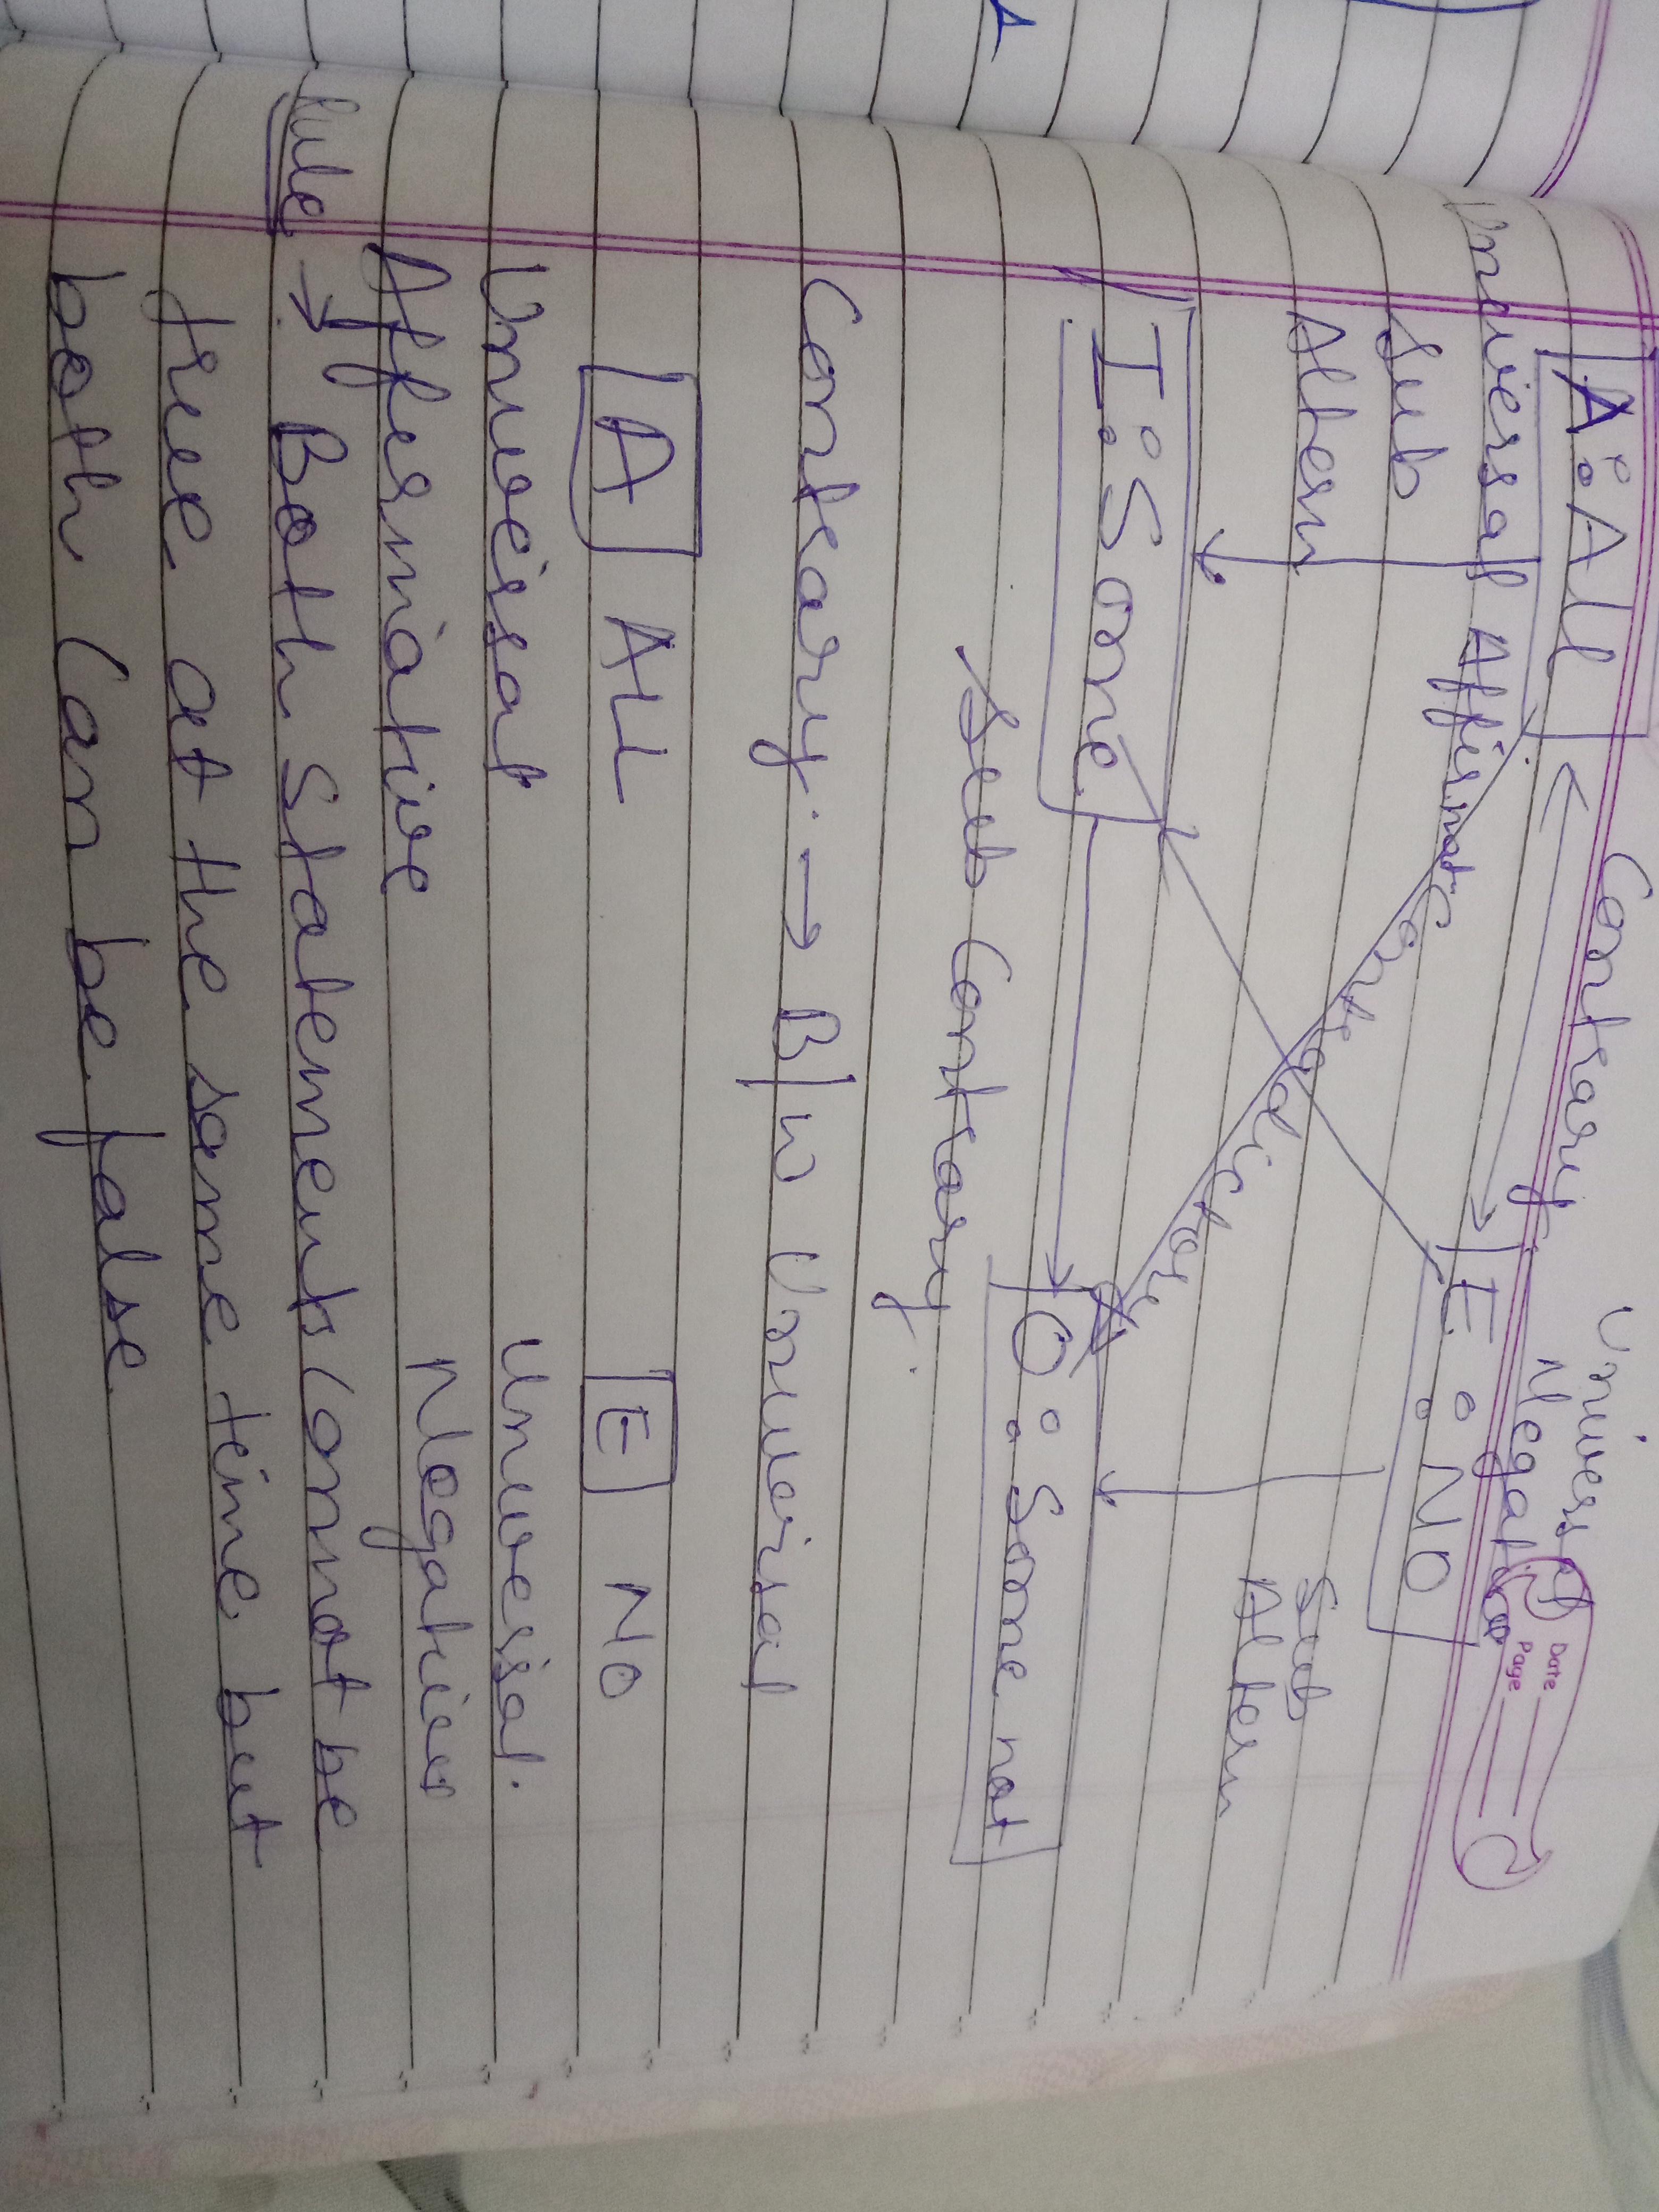 Contrary
Universal
Negative
Date
Page
A : All
E : NO
Universal Affirmat
Sub
Altern
Contradictory
Sub
Altern
I : Some
O : Some not
Sub Contrary.
Contrary. → B/w Universal
A ALL
E NO
Universal
Universal.
Affermative
Negative
Rule → Both Statements Connot be
true at the same time but
both Can be false.